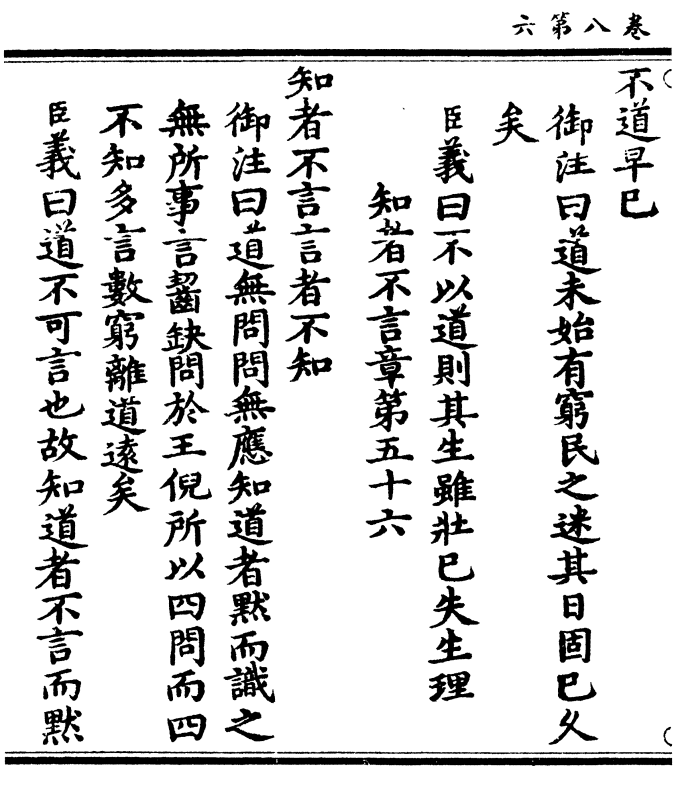 卷八第六
不道早巳
御注曰道未始有窮民之迷其日固巳久
矣
臣義曰不以道則其生雖壯巳失生理
知者不言章第五十六
知者不言言者不知
御注曰道無問問無應知道者默而識之
無所事言齧缺問於王倪所以四問而四
不知多言數窮離道遠矣
臣義曰道不可言也故知道者不言而默